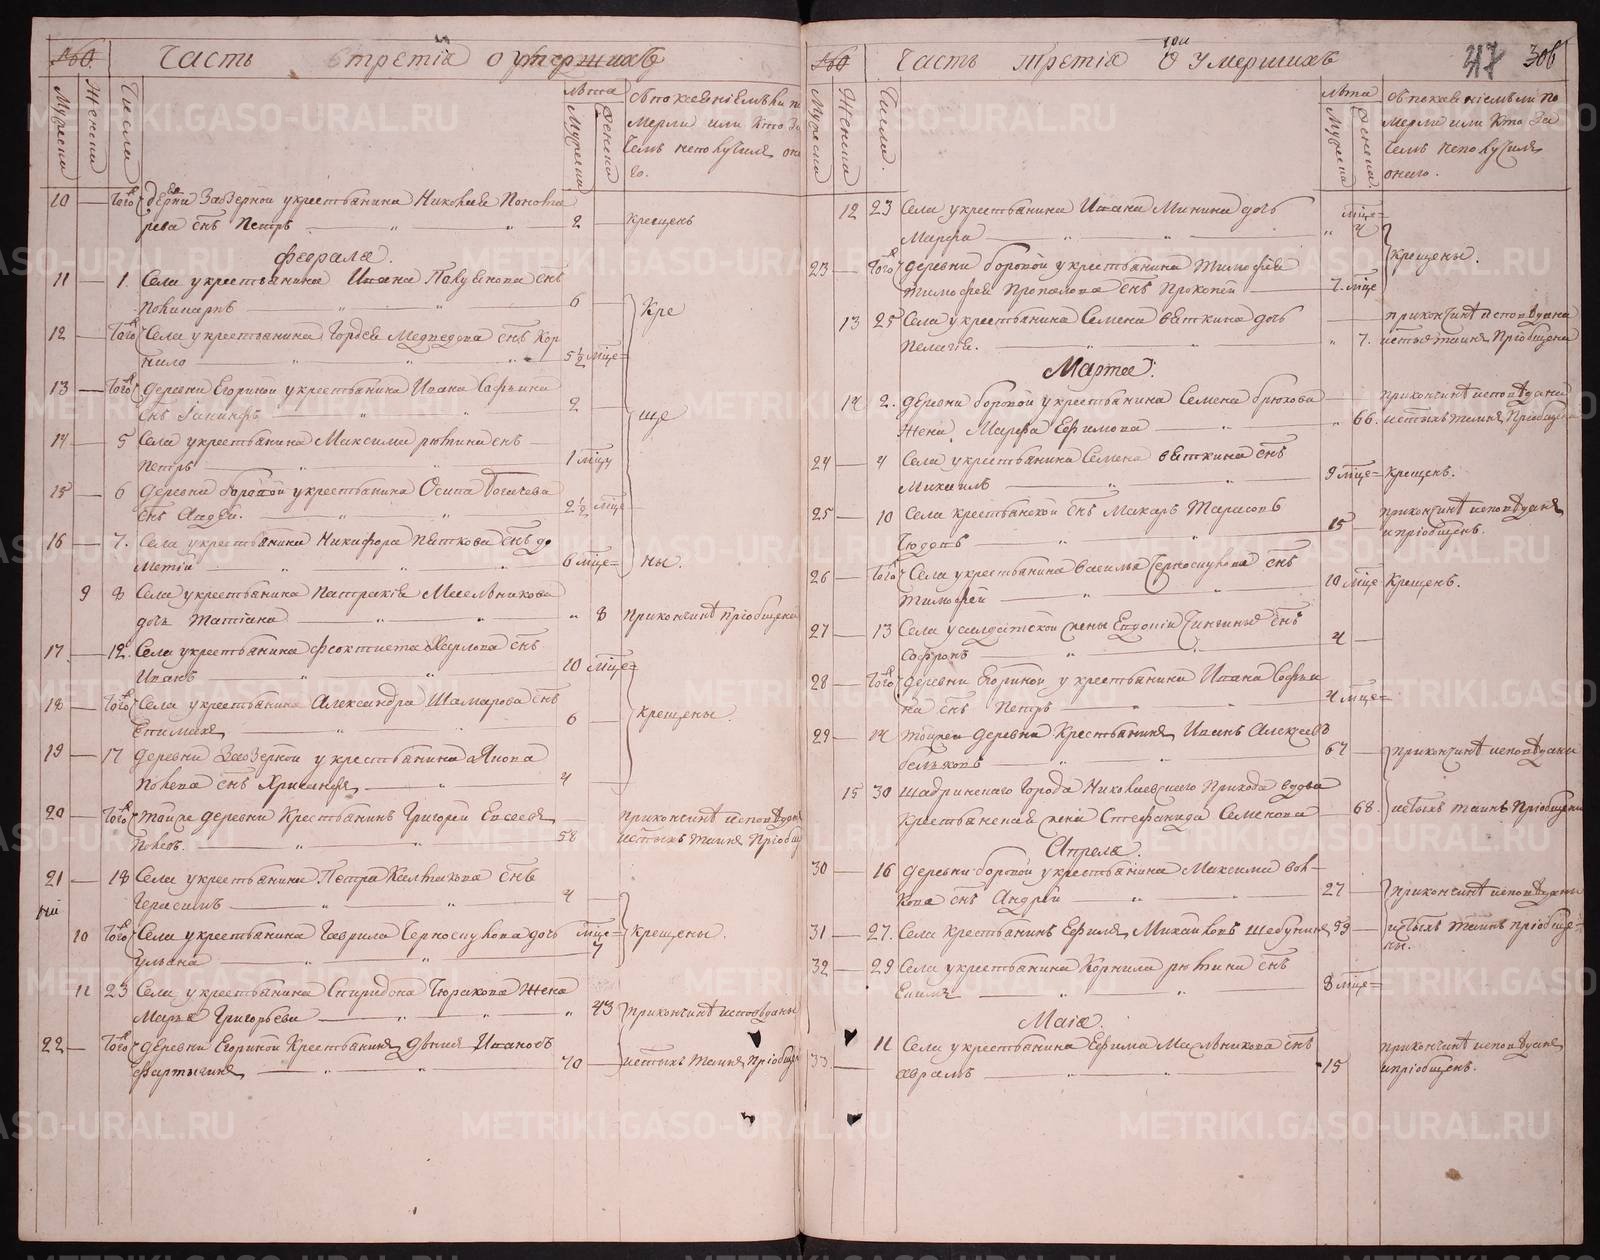 Часть третія о умершихъ
Мужеска
Женска
Числа
лѣта
Мужеска
Женска
съ покаяніемъ ли по
мерли или кто за
чемъ неполучилъ она
го.
10 — Того деревни Заозерной у крестьянина Николая Понома
рева снъ Петръ — 2 — крещенъ
февраля.
11 — 1. Села у крестьянина Ивана
снъ
Поликарпъ — 6 —
Кре
12 — Того Села у крестьянина Гордея Медведева снъ Кор
нило — 5 1/2 мце
13 — Того деревни Егориной у крестьянина Ивана Софьина
снъ Іакинфъ — 2
ще
14 — 5 Села у крестьянина Максима Рютина снъ
Петръ — 1 мцу
15 — 6 деревни боровой у крестьянина Осипа Богачева
снъ Андрей. — 2 1/2 мце
16 — 7. Села у крестьянина Никифора Пяткова снъ ди
митрій — 6 мце
ны.
9 8 Села у крестьянина Патракія Мельникова
дочь Татіана — 8 прикончинѣ пріобщена
17 — 12. Села у крестьянина Феоктиста Карпова снъ
Иванъ — 10 мце
18 — Того Села у крестьянина Александра Шамарова снъ
Евтихій — 6 —
крещены.
19 — 17 деревни Заозерной у крестьянина
снъ — 4
20 — Того тойже деревни Крестьянинъ Григорей Евсеевъ
Поповъ. — 58
прикончинѣ исповѣдан
истыхъ таинъ Пріобщ
21 — 18 Села у крестьянина Петра Калмакова снъ
Герасимъ — 4
10 Того Села у крестьянина Гаврила Черноскутова дочь мце
Ульяна — 7
крещены.
11 23 Села у крестьянина Спиридона Тюрикова Жена
Марья Григорьева — 43 прикончинѣ исповѣданы
22 — Того деревни Егориной Крестьянинъ Ивановъ
Фартыгинъ — 70 — истыхъ таинъ пріобще
Часть третія О умершихъ
47 306
Мужеска
Женска
Числа.
лѣта
Мужеска
Женска.
съ покаяніемъ ли по
мерли или кто за
чемъ неполучилъ
онаго.
12 23 Села у крестьянина Ивана Минина дочь мце
Марфа — 4
крещены.
23 — Того деревни боровой у крестьянина Тимофея
Тимофея Пропалова снъ Прокопей — 7. мце
13 25 Села у крестьянина Семена вяткина дочь
прикончинѣ исповѣдана
Пелагія. — 7. истыхъ таинъ Пріобщена
Марта.
14 2. деревни боровой у крестьянина Семена брюхова
прикончинѣ исповѣдана
жена Марфа Ефимова — 66. истыхъ таинъ Пріобще
24 — 4 Села у крестьянина Семена вяткина снъ
Михаилъ — 9 мце крещенъ.
25 — 10 Села крестьянской снъ Макаръ Тарасовъ
прикончинѣ исповѣданъ
— 15 — ипріобщенъ.
26 — Того Села у крестьянина василья Черноскутова снъ
Тимофей — 10 мце Крещенъ.
27 — 13 Села у салдатской жены Евдокіи снъ
Софронъ — 4 —
28 — Того деревни Егориной у крестьянина Ивана Софьи
на снъ Петръ — 4 мце
29 — 14 тойже деревни Крестьянинъ Иванъ Алексѣевъ
белыховъ — 67 — прикончинѣ исповѣданы
15 30 шадринскаго города Николаевскаго Прихода вдова
Крестьянская жена Стефанида Семенова — 68. истыхъ таинъ Пріобщены
Апреля.
30 — 16 деревни боровой у крестьянина Максима вол
кова снъ Андрей — 27 — прикончинѣ исповѣданы
31 — 27. Села Крестьянинъ Ефимъ Михайловъ Шебунинъ 59 — истыхъ таинъ пріобще
ны.
32 — 29 Села у крестьянина Корнила рютина снъ
Евимъ — 8 мце
Маія.
33. — 11 Села у крестьянина Ефима Мельникова снъ
прикончинѣ исповѣданъ
Аврамъ — 15 ипріобщенъ.
METRIKI.GASO-URAL.RU